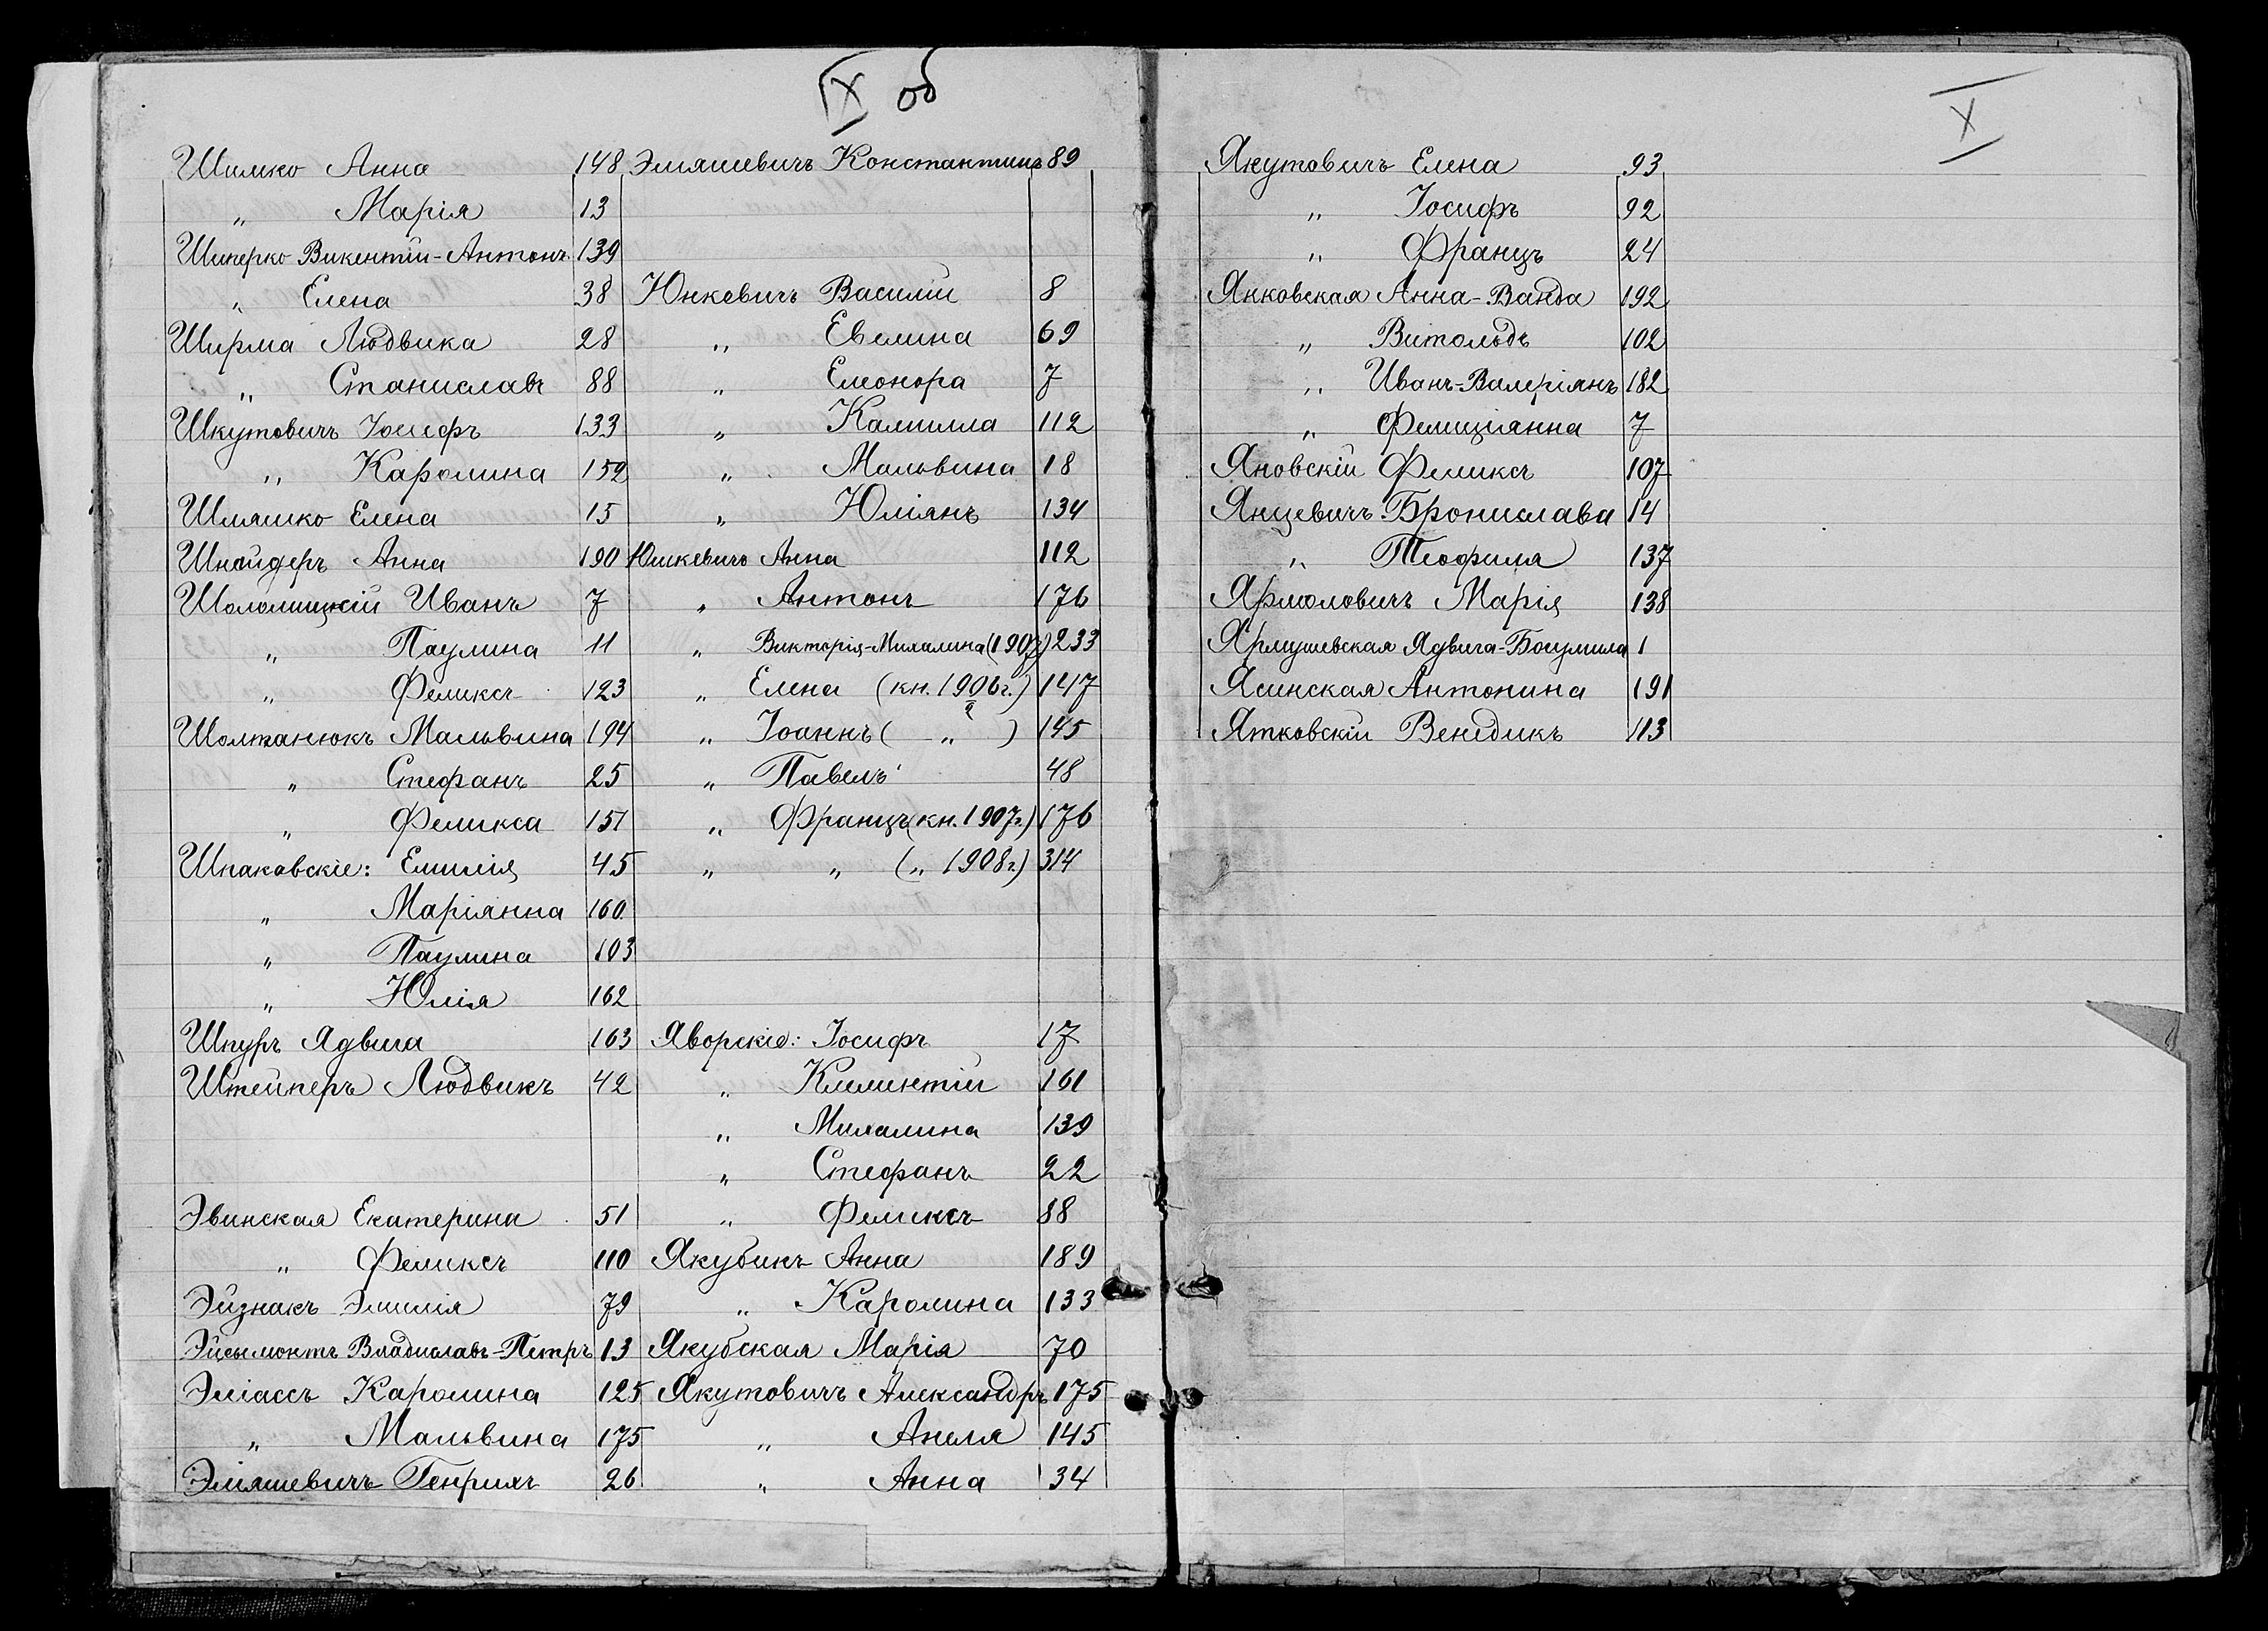 IX об
Шимко Анна 148
„ Марія 13
Шиперко Викентій-Антонъ 139
„ Елена 38
Ширма Людвика 28
„ Станиславъ 88
Шкутовичъ Іосифъ 133
„ Каролина 152
Шляшко Елена 15
Шнайдеръ Анна 190
Шоломицкій Иванъ 7
„ Паулина 11
„ Феликсъ 123
Шолтанюкъ Мальвина 194
„ Стефанъ 25
„ Феликса 151
Шпаковскіе: Емилія 45
„ Маріянна 160
„ Паулина 103
„ Юлія 162
Шпуръ Ядвига 163
Штейнеръ Людвикъ 42
Эвинская Екатерина 51
„ Феликсъ 110
Эйзнакъ Эмилія 79
Эйсымонтъ Владиславъ-Петръ 13
Эліассъ Каролина 125
„ Мальвина 175
Эліяшевичъ Генрихъ 26
Эліяшевичъ Константинъ 89
Юнкевичъ Василій 8
„ Евелина 69
„ Елеонора 7
„ Камилла 112
„ Мальвина 18
„ Юліянъ 134
Юшкевичъ Анна 112
„ Антонъ 176
„ Викторія-Михалина (1907) 233
„ Елена (кн. 1906 г.) 147
„ Іоаннъ ( „ ) 145
„ Павелъ 48
„ Францъ (кн. 1907 г.) 176
„ „ („ 1908 г.) 314
Яворскіе: Іосифъ 17
„ Климентій 161
„ Михалина 139
„ Стефанъ 22
„ Феликсъ 88
Якубикъ Анна 189
„ Каролина 133
Якубская Марія 70
Якутовичъ Александръ 175
„ Анеля 145
„ Анна 34
X
Якутовичъ Елена 93
„ Іосифъ 92
„ Францъ 24
Янковская Анна-Ванда 192
„ Витольдъ 102
„ Иванъ-Валеріянъ 182
„ Фелиціянна 7
Яновскій Феликсъ 107
Янцевичъ Бронислава 14
„ Теофиля 137
Ярмоловичъ Марія 138
Ярмушевская Ядвига-Богумила 1
Ясинская Антонина 191
Ятковскій Венедикъ 113